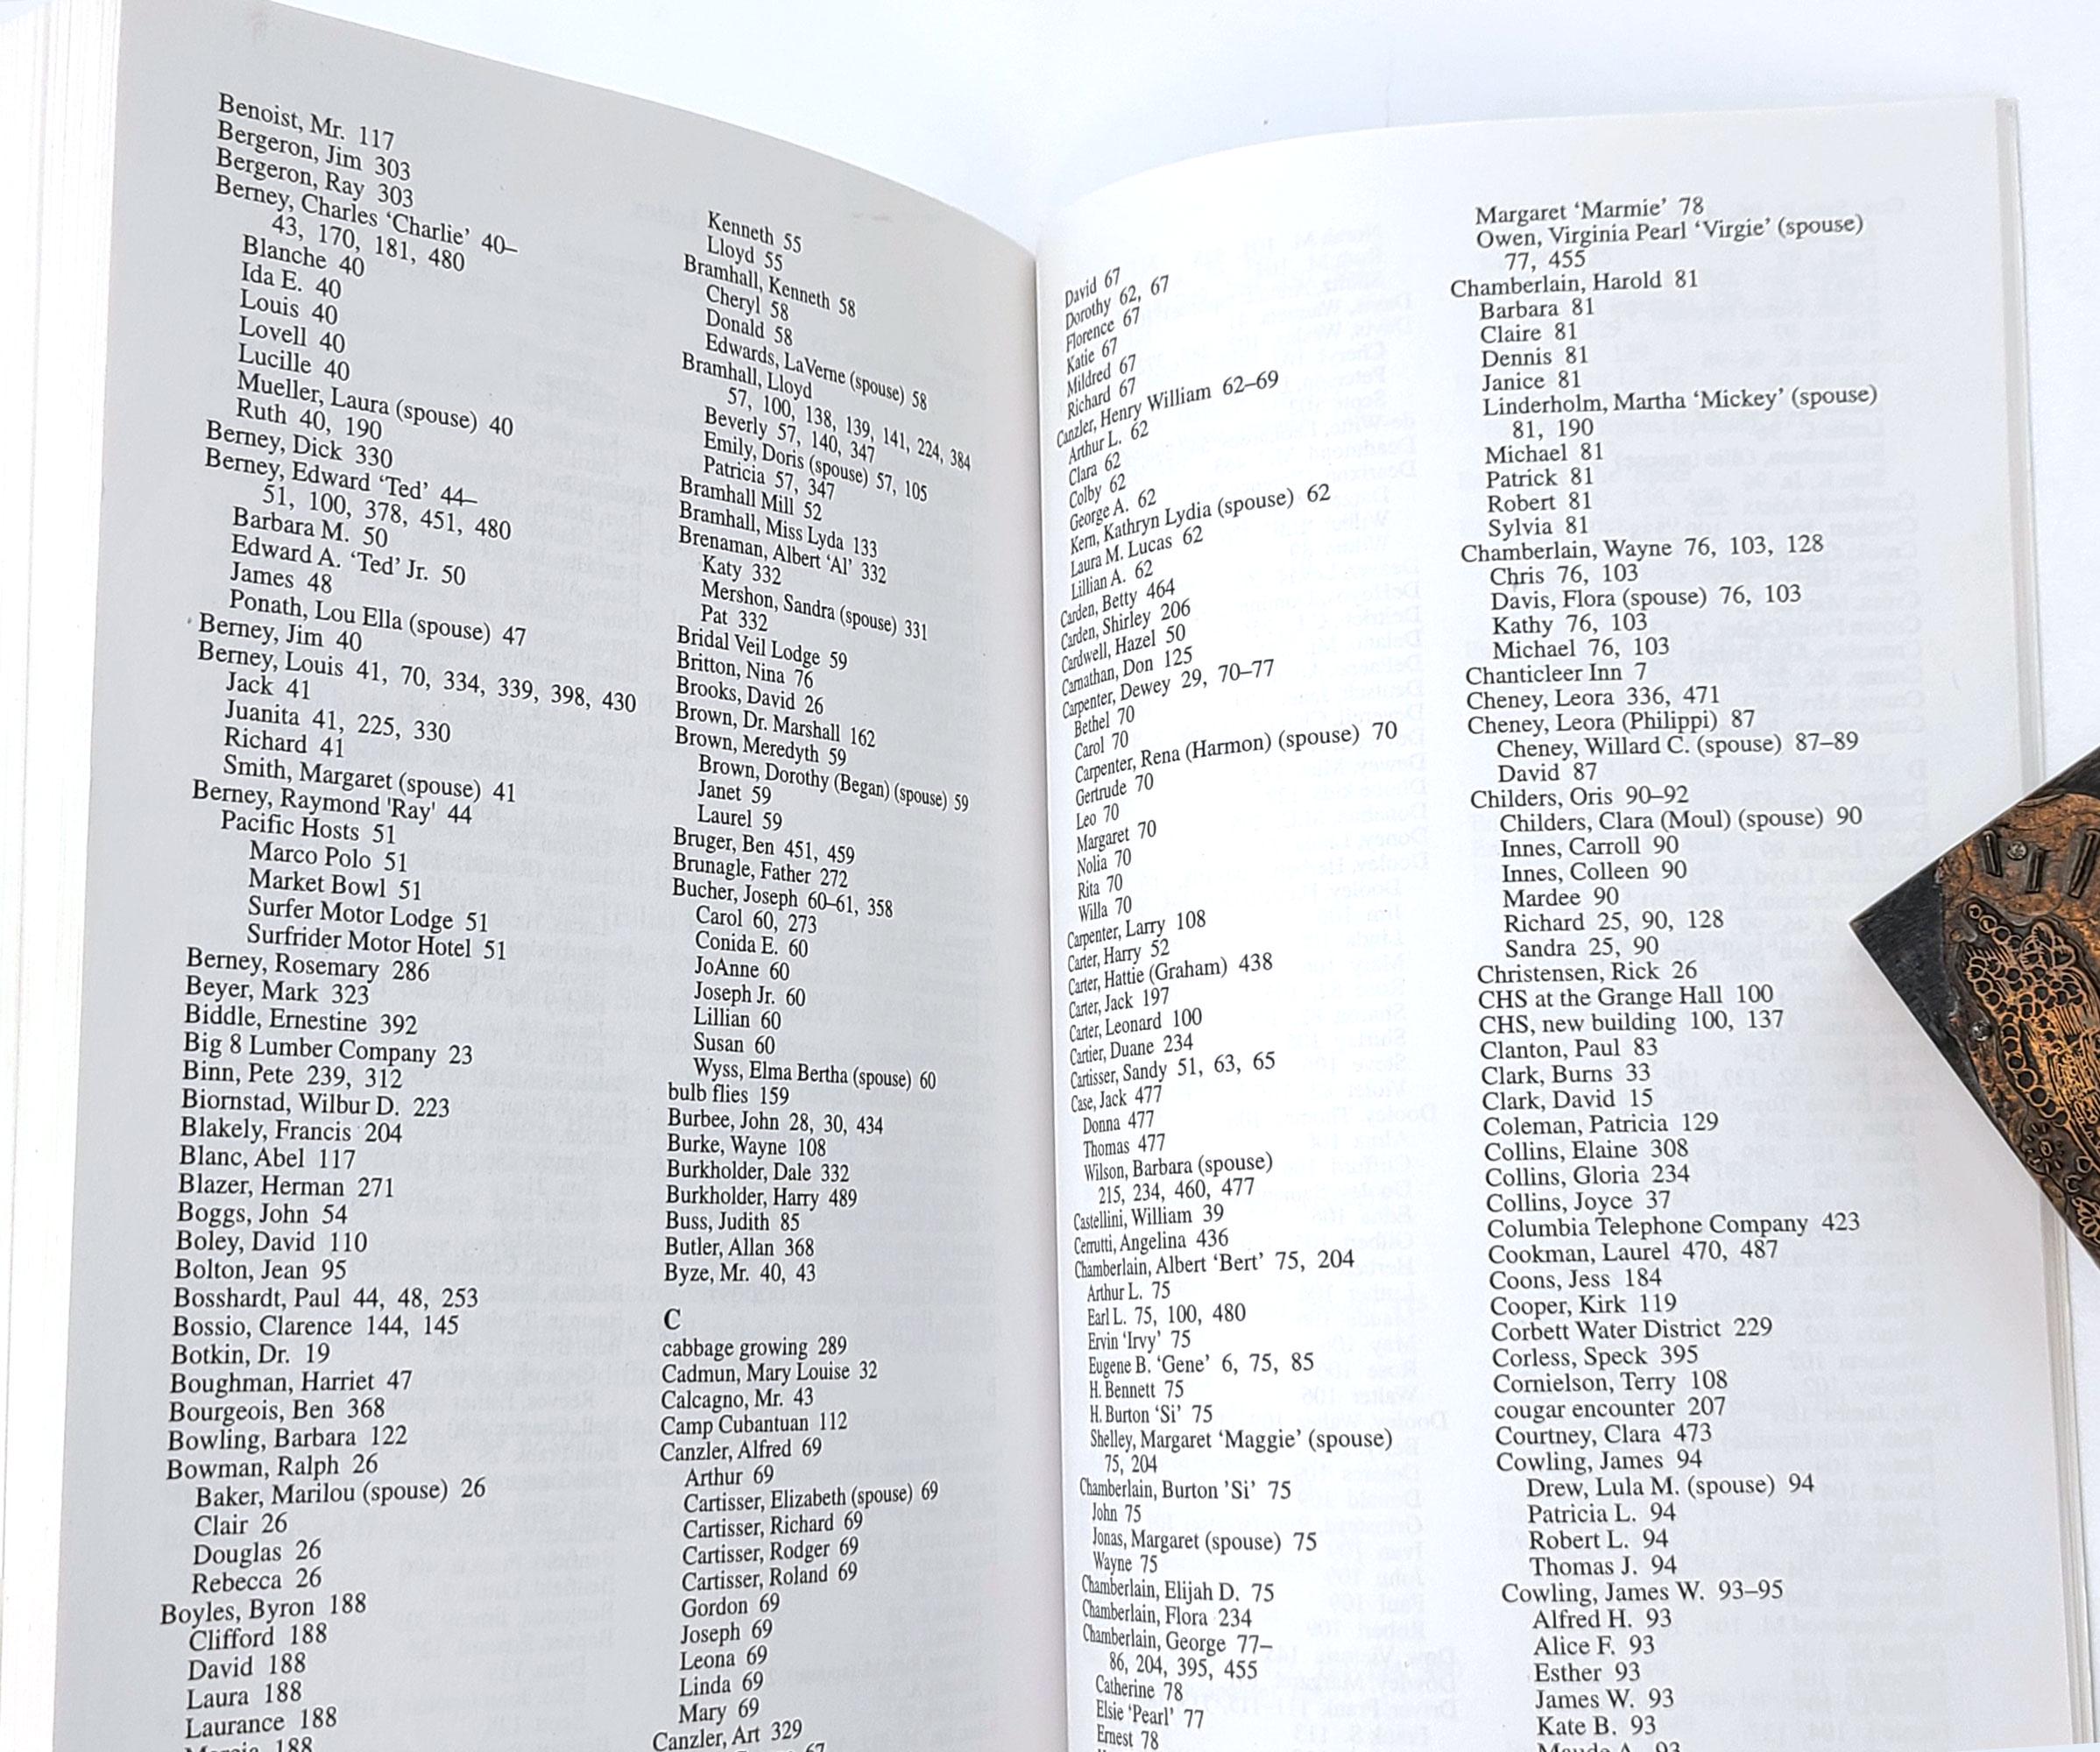 Benoist, Mr. 117
Bergeron, Jim 303
Bergeron, Ray 303
Berney, Charles ‘Charlie’ 40–
43, 170, 181, 480
Blanche 40
Ida E. 40
Louis 40
Lovell 40
Lucille 40
Mueller, Laura (spouse) 40
Ruth 40, 190
Berney, Dick 330
Berney, Edward ‘Ted’ 44–
51, 100, 378, 451, 480
Barbara M. 50
Edward A. ‘Ted’ Jr. 50
James 48
Ponath, Lou Ella (spouse) 47
Berney, Jim 40
Berney, Louis 41, 70, 334, 339, 398, 430
Jack 41
Juanita 41, 225, 330
Richard 41
Smith, Margaret (spouse) 41
Berney, Raymond 'Ray' 44
Pacific Hosts 51
Marco Polo 51
Market Bowl 51
Surfer Motor Lodge 51
Surfrider Motor Hotel 51
Berney, Rosemary 286
Beyer, Mark 323
Biddle, Ernestine 392
Big 8 Lumber Company 23
Binn, Pete 239, 312
Biornstad, Wilbur D. 223
Blakely, Francis 204
Blanc, Abel 117
Blazer, Herman 271
Boggs, John 54
Boley, David 110
Bolton, Jean 95
Bosshardt, Paul 44, 48, 253
Bossio, Clarence 144, 145
Botkin, Dr. 19
Boughman, Harriet 47
Bourgeois, Ben 368
Bowling, Barbara 122
Bowman, Ralph 26
Baker, Marilou (spouse) 26
Clair 26
Douglas 26
Rebecca 26
Boyles, Byron 188
Clifford 188
David 188
Laura 188
Laurance 188
188
Kenneth 55
Lloyd 55
Bramhall, Kenneth 58
Cheryl 58
Donald 58
Edwards, LaVerne (spouse) 58
Bramhall, Lloyd
57, 100, 138, 139, 141, 224, 384
Beverly 57, 140, 347
Emily, Doris (spouse) 57, 105
Patricia 57, 347
Bramhall Mill 52
Bramhall, Miss Lyda 133
Brenaman, Albert ‘Al’ 332
Katy 332
Mershon, Sandra (spouse) 331
Pat 332
Bridal Veil Lodge 59
Britton, Nina 76
Brooks, David 26
Brown, Dr. Marshall 162
Brown, Meredyth 59
Brown, Dorothy (Began) (spouse) 59
Janet 59
Laurel 59
Bruger, Ben 451, 459
Brunagle, Father 272
Bucher, Joseph 60–61, 358
Carol 60, 273
Conida E. 60
JoAnne 60
Joseph Jr. 60
Lillian 60
Susan 60
Wyss, Elma Bertha (spouse) 60
bulb flies 159
Burbee, John 28, 30, 434
Burke, Wayne 108
Burkholder, Dale 332
Burkholder, Harry 489
Buss, Judith 85
Butler, Allan 368
Byze, Mr. 40, 43
C
cabbage growing 289
Cadmun, Mary Louise 32
Calcagno, Mr. 43
Camp Cubantuan 112
Canzler, Alfred 69
Arthur 69
Cartisser, Elizabeth (spouse) 69
Cartisser, Richard 69
Cartisser, Rodger 69
Cartisser, Roland 69
Gordon 69
Joseph 69
Leona 69
Linda 69
Mary 69
Canzler, Art 329
67
David 67
Dorothy 62, 67
Florence 67
Katie 67
Mildred 67
Richard 67
Canzler, Henry William 62–69
Arthur L. 62
Clara 62
Colby 62
George A. 62
Kern, Kathryn Lydia (spouse) 62
Laura M. Lucas 62
Lillian A. 62
Carden, Betty 464
Carden, Shirley 206
Cardwell, Hazel 50
Carnathan, Don 125
Carpenter, Dewey 29, 70–77
Bethel 70
Carol 70
Carpenter, Rena (Harmon) (spouse) 70
Gertrude 70
Leo 70
Margaret 70
Nolia 70
Rita 70
Willa 70
Carpenter, Larry 108
Carter, Harry 52
Carter, Hattie (Graham) 438
Carter, Jack 197
Carter, Leonard 100
Cartier, Duane 234
Cartisser, Sandy 51, 63, 65
Case, Jack 477
Donna 477
Thomas 477
Wilson, Barbara (spouse)
215, 234, 460, 477
Castellini, William 39
Cerrutti, Angelina 436
Chamberlain, Albert ‘Bert’ 75, 204
Arthur L. 75
Earl L. 75, 100, 480
Ervin ‘Irvy’ 75
Eugene B. ‘Gene’ 6, 75, 85
H. Bennett 75
H. Burton ‘Si’ 75
Shelley, Margaret ‘Maggie’ (spouse)
75, 204
Chamberlain, Burton ’Si’ 75
John 75
Jonas, Margaret (spouse) 75
Wayne 75
Chamberlain, Elijah D. 75
Chamberlain, Flora 234
Chamberlain, George 77–
86, 204, 395, 455
Catherine 78
Elsie ‘Pearl’ 77
Ernest 78
Margaret ‘Marmie’ 78
Owen, Virginia Pearl ‘Virgie’ (spouse)
77, 455
Chamberlain, Harold 81
Barbara 81
Claire 81
Dennis 81
Janice 81
Linderholm, Martha ‘Mickey’ (spouse)
81, 190
Michael 81
Patrick 81
Robert 81
Sylvia 81
Chamberlain, Wayne 76, 103, 128
Chris 76, 103
Davis, Flora (spouse) 76, 103
Kathy 76, 103
Michael 76, 103
Chanticleer Inn 7
Cheney, Leora 336, 471
Cheney, Leora (Philippi) 87
Cheney, Willard C. (spouse) 87–89
David 87
Childers, Oris 90–92
Childers, Clara (Moul) (spouse) 90
Innes, Carroll 90
Innes, Colleen 90
Mardee 90
Richard 25, 90, 128
Sandra 25, 90
Christensen, Rick 26
CHS at the Grange Hall 100
CHS, new building 100, 137
Clanton, Paul 83
Clark, Burns 33
Clark, David 15
Coleman, Patricia 129
Collins, Elaine 308
Collins, Gloria 234
Collins, Joyce 37
Columbia Telephone Company 423
Cookman, Laurel 470, 487
Coons, Jess 184
Cooper, Kirk 119
Corbett Water District 229
Corless, Speck 395
Cornielson, Terry 108
cougar encounter 207
Courtney, Clara 473
Cowling, James 94
Drew, Lula M. (spouse) 94
Patricia L. 94
Robert L. 94
Thomas J. 94
Cowling, James W. 93–95
Alfred H. 93
Alice F. 93
Esther 93
James W. 93
Kate B. 93
93